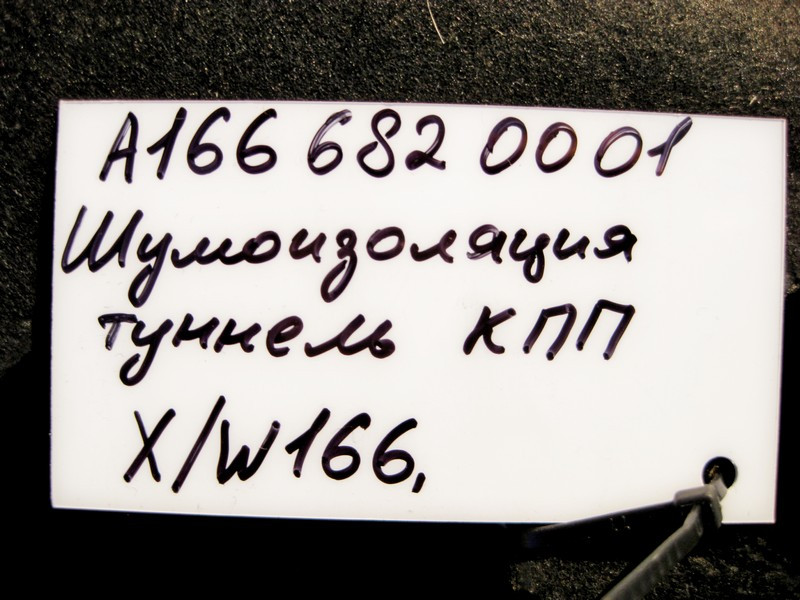 A166 682 00 01
Шумоизоляция
туннель КПП
X/W166,